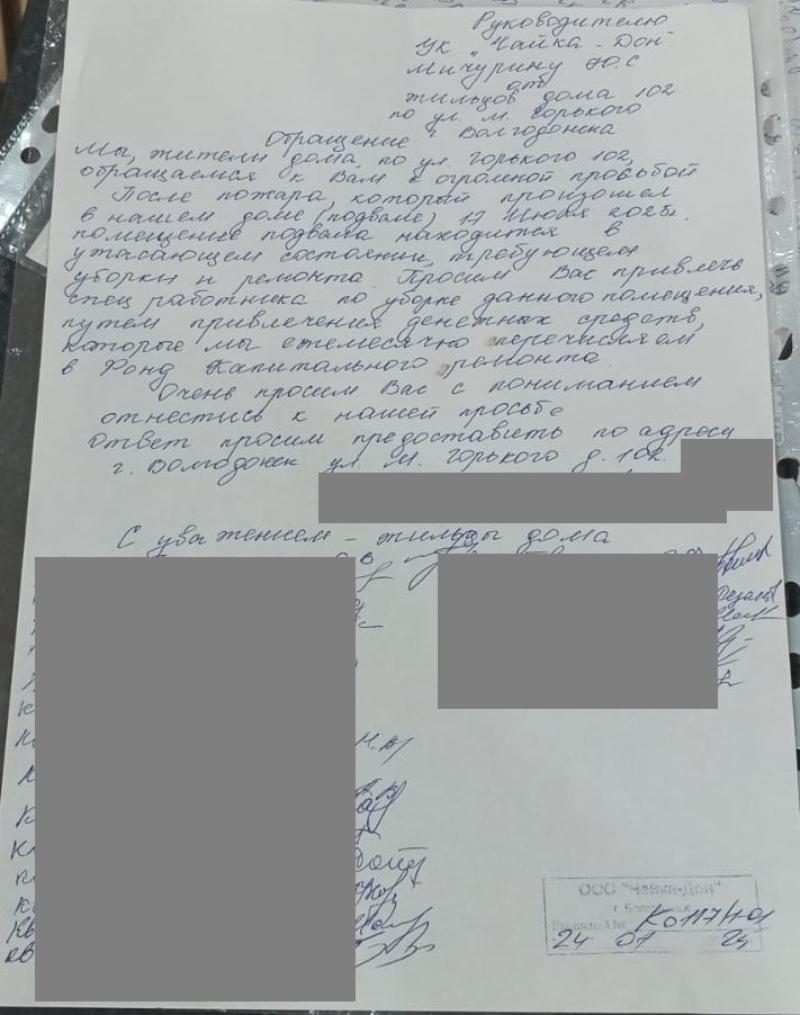 Руководителю
УК „Чайка-Дон"
Мичурину Ю.С
от
жильцов дома 102
по ул. М. Горького
г Волгодонска
Обращение
Мы, жители дома, по ул. Горького 102,
обращаемся к Вам с огромной просьбой
После пожара, который произошел
в нашем доме (подвале) 17 Июня 2025г.
помещение подвала находится в
ужасающем состоянии, требующем
уборки и ремонта. Просим Вас привлечь
спец работника по уборке данного помещения,
путем привлечения денежных средств,
которые мы ежемесячно перечисляем
в Фонд Капитального ремонта.
Очень просим Вас с пониманием
отнестись к нашей просьбе
ответ просим предоставить по адресу
г. Волгодонск ул. М. Горького д. 102.
С уважением - жильцы дома
ООО "Чайка-Дон"
г. Волгодонск
№
24 07